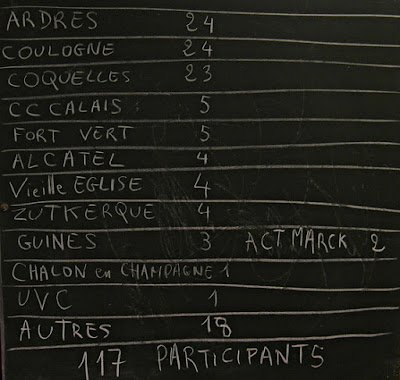 ARDRES 24
COULOGNE 24
COQUELLES 23
CC CALAIS 5
FORT VERT 5
ALCATEL 4
Vieille EGLISE 4
ZUTKERQUE 4
GUINES 3 ACT MARCK 2
CHALON en CHAMPAGNE 1
UVC 1
AUTRES 18
117 PARTICIPANTS